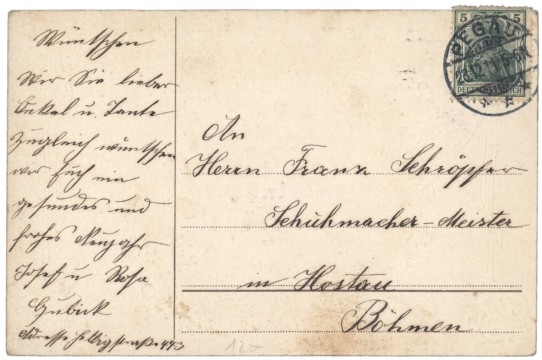 Wünschen
Wir Sie lieber
Onkel u. Tante
Zugleich wünschen
wir Euch ein
gesundes und
frohes Neujahr
Josef u Rosa
Gubick
Adresse
5 5
PEGAU
An
Herrn Franz Schröpfer
Schuhmacher-Meister
in Hostau
Böhmen
12-